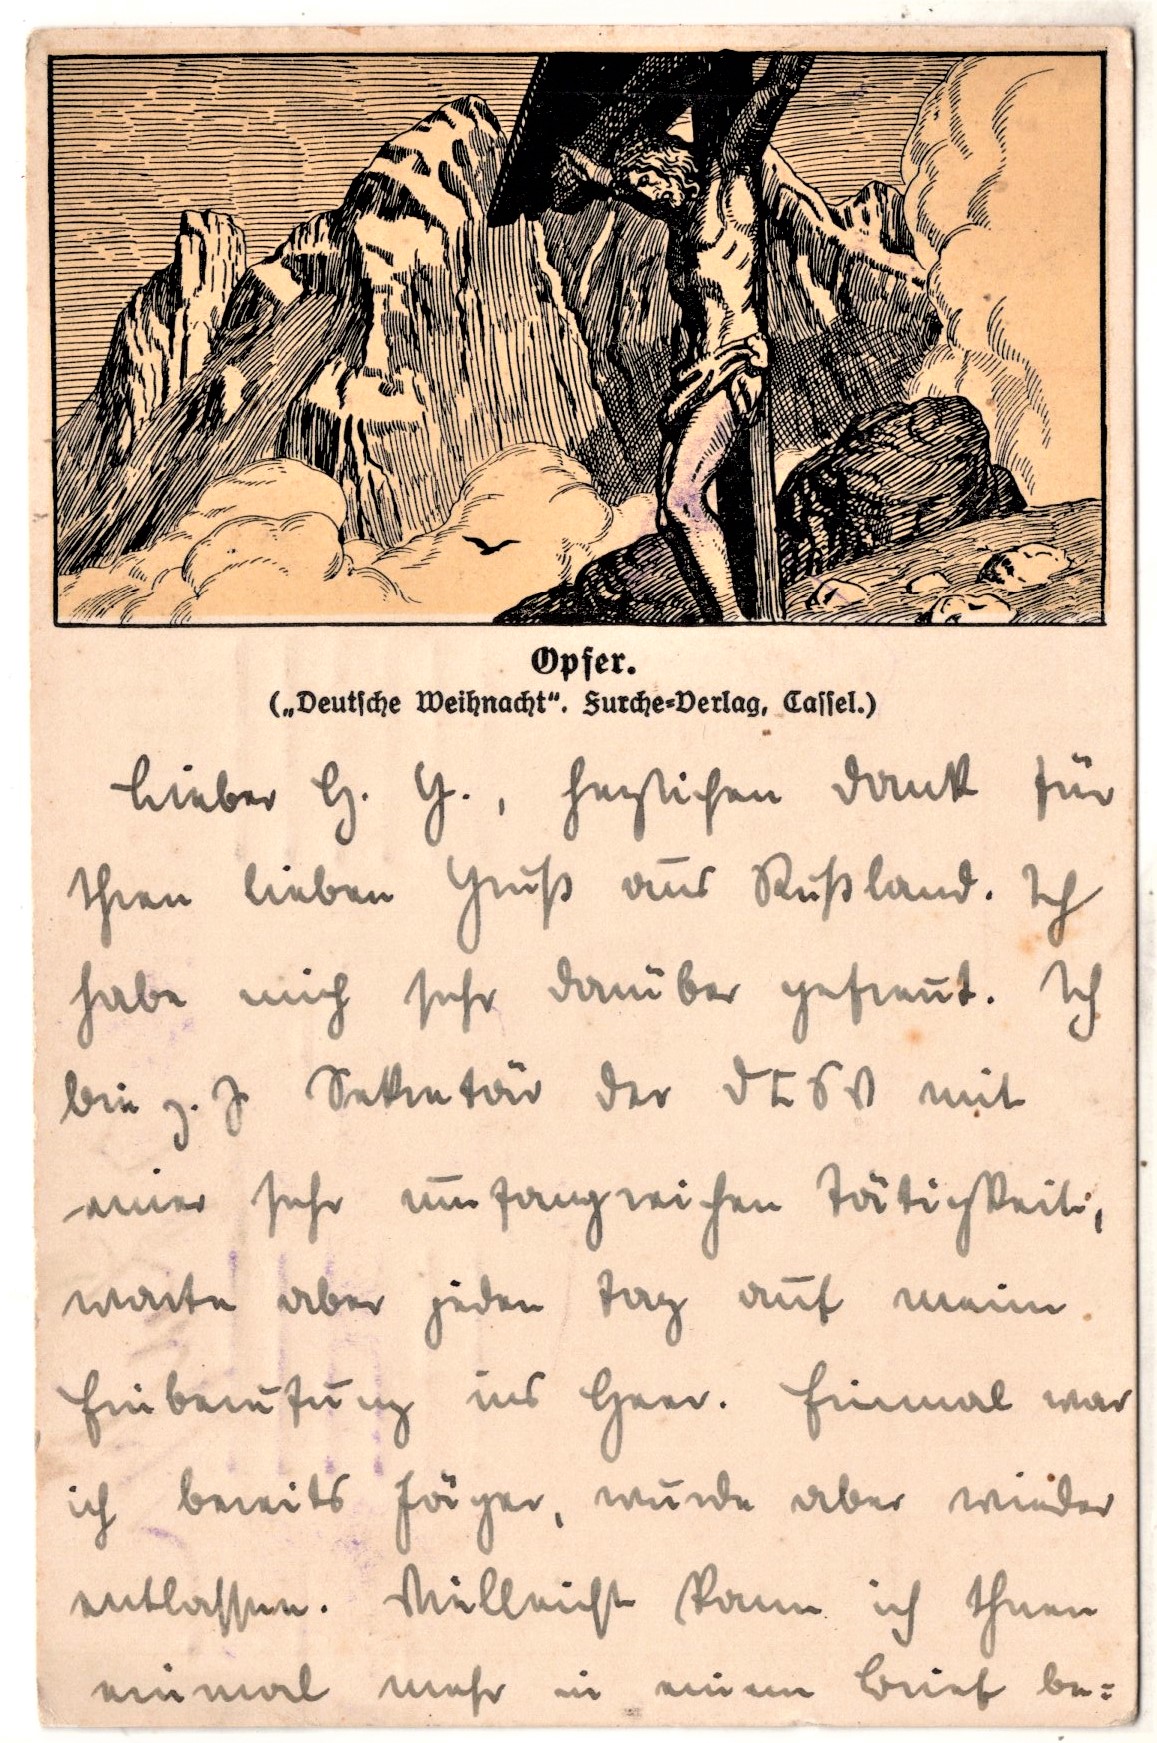 Opfer.
(„Deutsche Weihnacht“. Furche-Verlag, Cassel.)
Lieber H. G., herzlichen Dank für
Ihren lieben Gruß aus Rußland. Ich
habe mich sehr darüber gefreut. Ich
bin z. Z Sekretär der DCSV mit
einer sehr umfangreichen Tätigkeit,
warte aber jeden Tag auf meine
Einberufung ins Heer. Einmal war
ich bereits Jäger, wurde aber wieder
entlassen. Vielleicht kann ich Ihnen
einmal mehr in einem Brief be=